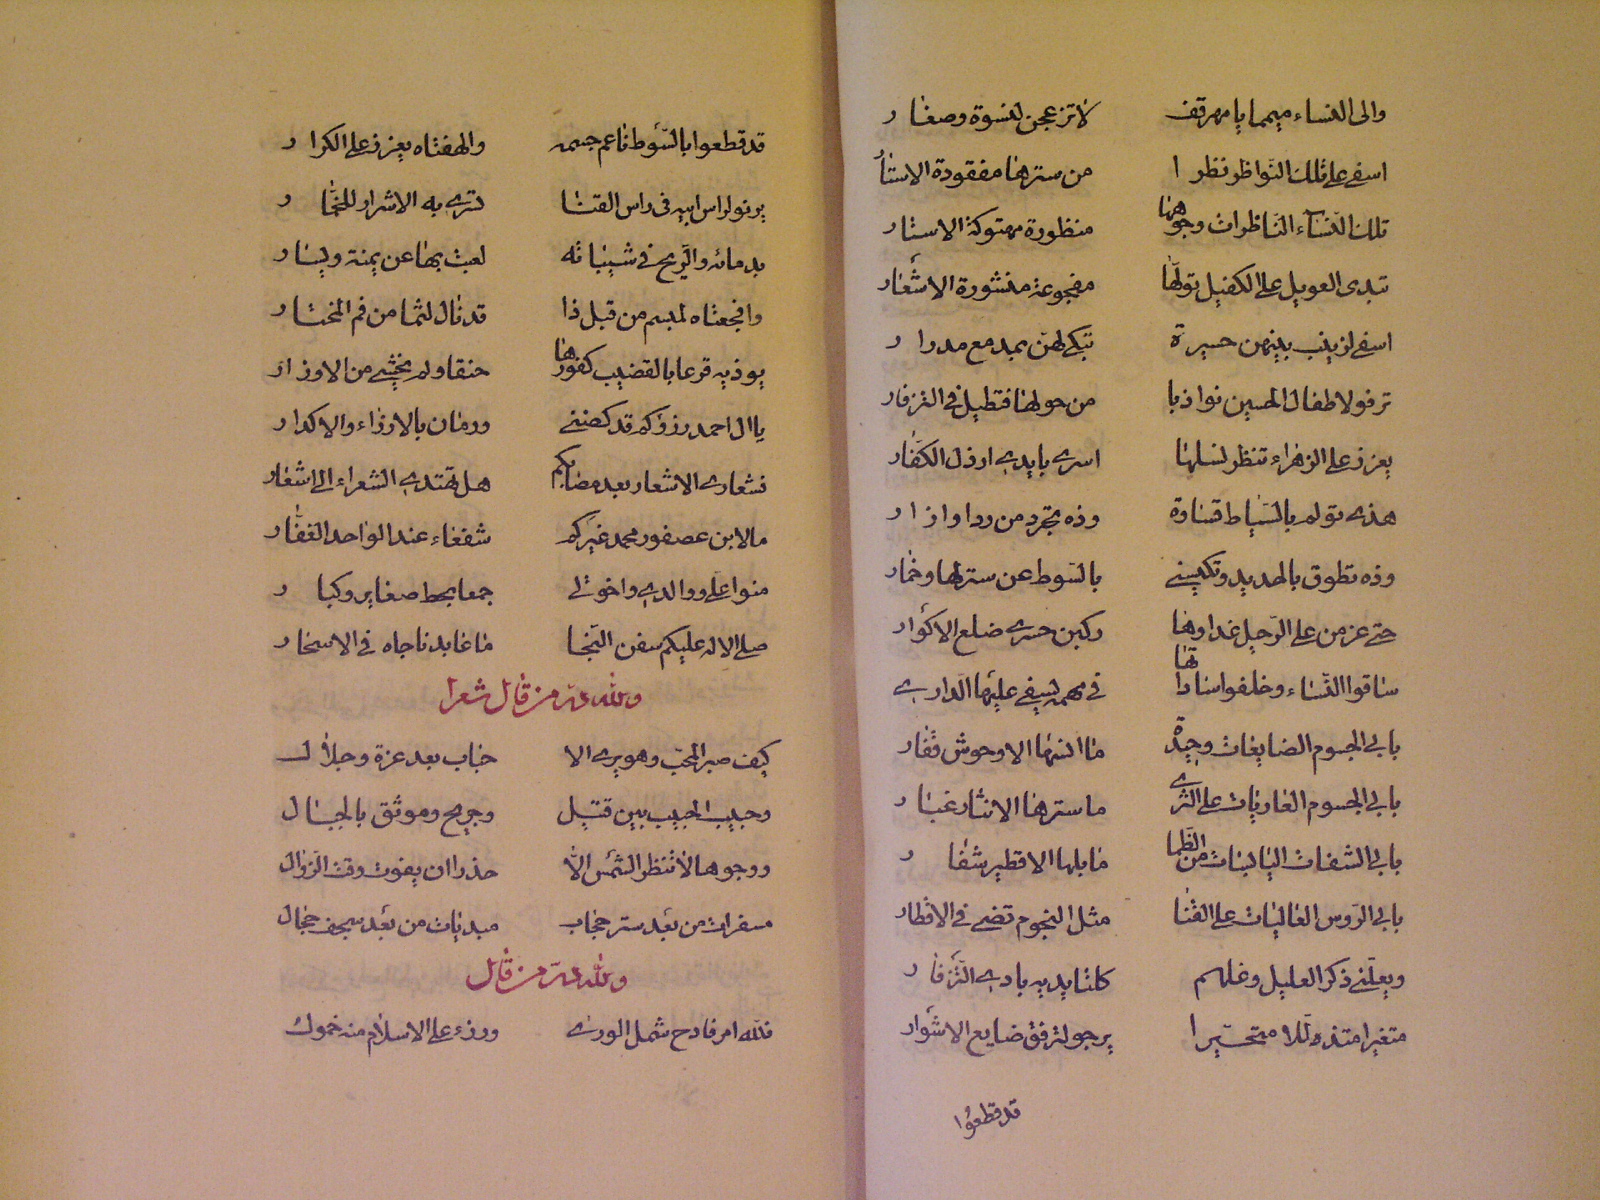 والى النساء ميمما يا مهر قف لا تزعجن لنسوة وصغار
اسفي على تلك النواظر نظرا من سترها مفقودة الاستار
تلك النساء الناظرات وجوهها منظورة مهتوكة الاستار
تبدى العويل على الكفيل تولها مفجوعة منشورة الاشعار
اسفي لزينب بينهن حسيرة تبكي لهن بمدمع مدرار
ترفو لاطفال الحسين نواذبا من حولها فتطيل في التزفار
يعزز على الزهراء تنظر نسلها اسرى بايدي ارذل الكفار
هذي تولم بالسياط قساوة وذه تجرد من ردا وازار
وذه تطوق بالحديد وتكتسي بالسوط عن سترلها وخمار
حتى عزمن على الرحيل غداوها ركبن حسرى ضلع الاكوار
ساقوا النساء وخلفوا ساداتها في مهمه يسفي عليها الذاري
بابي الجسوم الضايعات وحيدة ما انسها الا وحوش قفار
بابي الجسوم العاريات على الثرى ما سترها الا نثار غبار
بابي الشفات اليابسات من الظما ما بلها الا قطير شفار
بابي الروس العاليات على القنا مثل النجوم تضي في الاقطار
ويعلني ذكر العليل وغلهم كلتا يديه بادي التزفار
متغيرا متذللا متحيرا يرجو لترفق ضايع الاشوار
قد قطعوا
قد قطعوا بالسوط ناعم جسمه والهفتاه يعزز على الكرار
يرنو لراس ابيه في راس القنا تسري به الاشرار للخمار
بدمائه والريح في شيباته لعبت بها عن يمنة ويسار
وافجعتاه لمبسم من قبل ذا قد نال لثما من فم المختار
يوذيه قرعا بالقضيب كفورها حنقا ولم يخشى من الاوزار
يا ال احمد رزؤكم قد كضني ورمان بالارزاء والاكدار
نشعاري الاشعار بعد مصابكم هل تهتدي الشعراء الى اشعار
ما لابن عصفور محمد غيركم شفعاء عند الواحد الغفار
منوا علي ووالدي واخوتي جمعا بحط صغاير وكبار
صلى الاله عليكم سفن النجا ما غابد ناجاه في الاسحار
ولله در من قال شعرا
كيف صبر المحب وهو يرى الا حباب بعد عزة وجلال
وحبيب الحبيب بين قتيل وجريح وموثق بالحبال
ووجوها لا تنظر الشمس الا حذرا ان يفوت وقت الزوال
مسفرات من بعد ستر حجاب مبديات من بعد سجف حجال
ولله در من قال
فلله امر فادح شمل الورى ورزء على الاسلام منه خمول